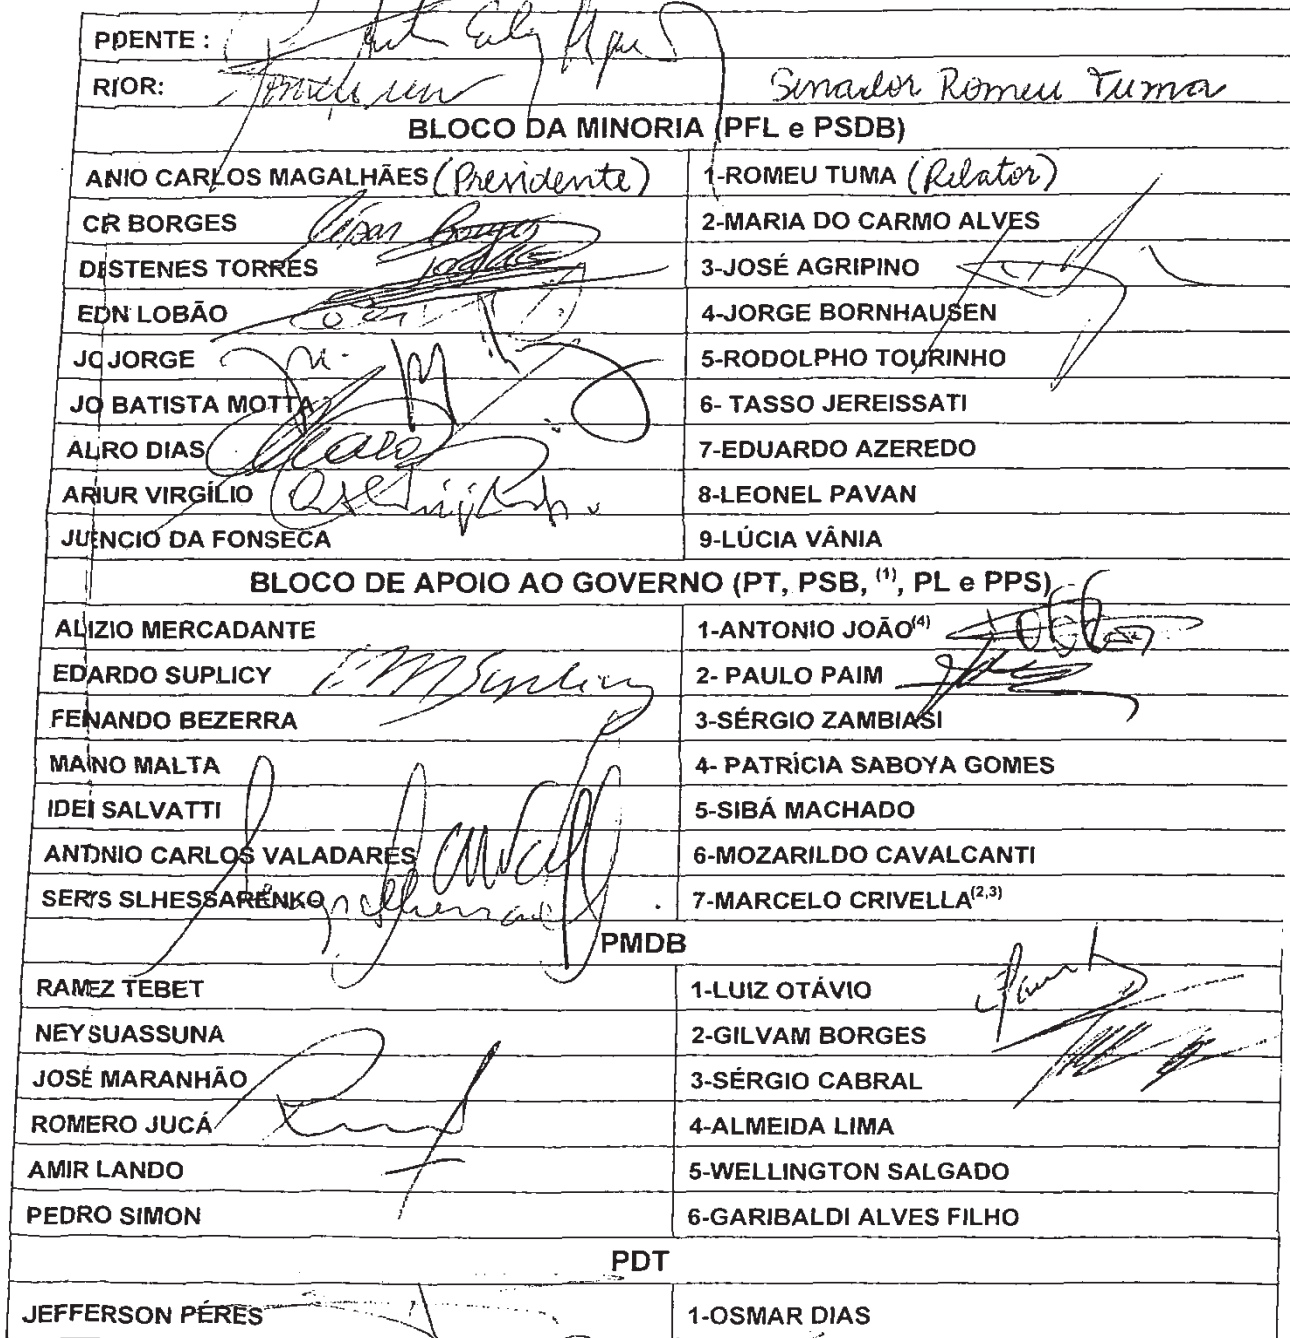 PDENTE :
RIOR: Senador Romeu Tuma
BLOCO DA MINORIA (PFL e PSDB)
ANIO CARLOS MAGALHÃES (Presidente) 1-ROMEU TUMA (Relator)
CR BORGES 2-MARIA DO CARMO ALVES
DESTENES TORRES 3-JOSÉ AGRIPINO
EDN LOBÃO 4-JORGE BORNHAUSEN
JO JORGE 5-RODOLPHO TOURINHO
JO BATISTA MOTTA 6- TASSO JEREISSATI
ALRO DIAS 7-EDUARDO AZEREDO
ARIUR VIRGÍLIO 8-LEONEL PAVAN
JUENCIO DA FONSECA 9-LÚCIA VÂNIA
BLOCO DE APOIO AO GOVERNO (PT, PSB, (1), PL e PPS)
ALIZIO MERCADANTE 1-ANTONIO JOÃO(4)
EDARDO SUPLICY 2- PAULO PAIM
FENANDO BEZERRA 3-SÉRGIO ZAMBIASI
MANO MALTA 4- PATRÍCIA SABOYA GOMES
IDEI SALVATTI 5-SIBÁ MACHADO
ANTONIO CARLOS VALADARES 6-MOZARILDO CAVALCANTI
SERYS SLHESSARENKO 7-MARCELO CRIVELLA(2,3)
PMDB
RAMEZ TEBET 1-LUIZ OTÁVIO
NEY SUASSUNA 2-GILVAM BORGES
JOSÉ MARANHÃO 3-SÉRGIO CABRAL
ROMERO JUCÁ 4-ALMEIDA LIMA
AMIR LANDO 5-WELLINGTON SALGADO
PEDRO SIMON 6-GARIBALDI ALVES FILHO
PDT
JEFFERSON PÉRES 1-OSMAR DIAS